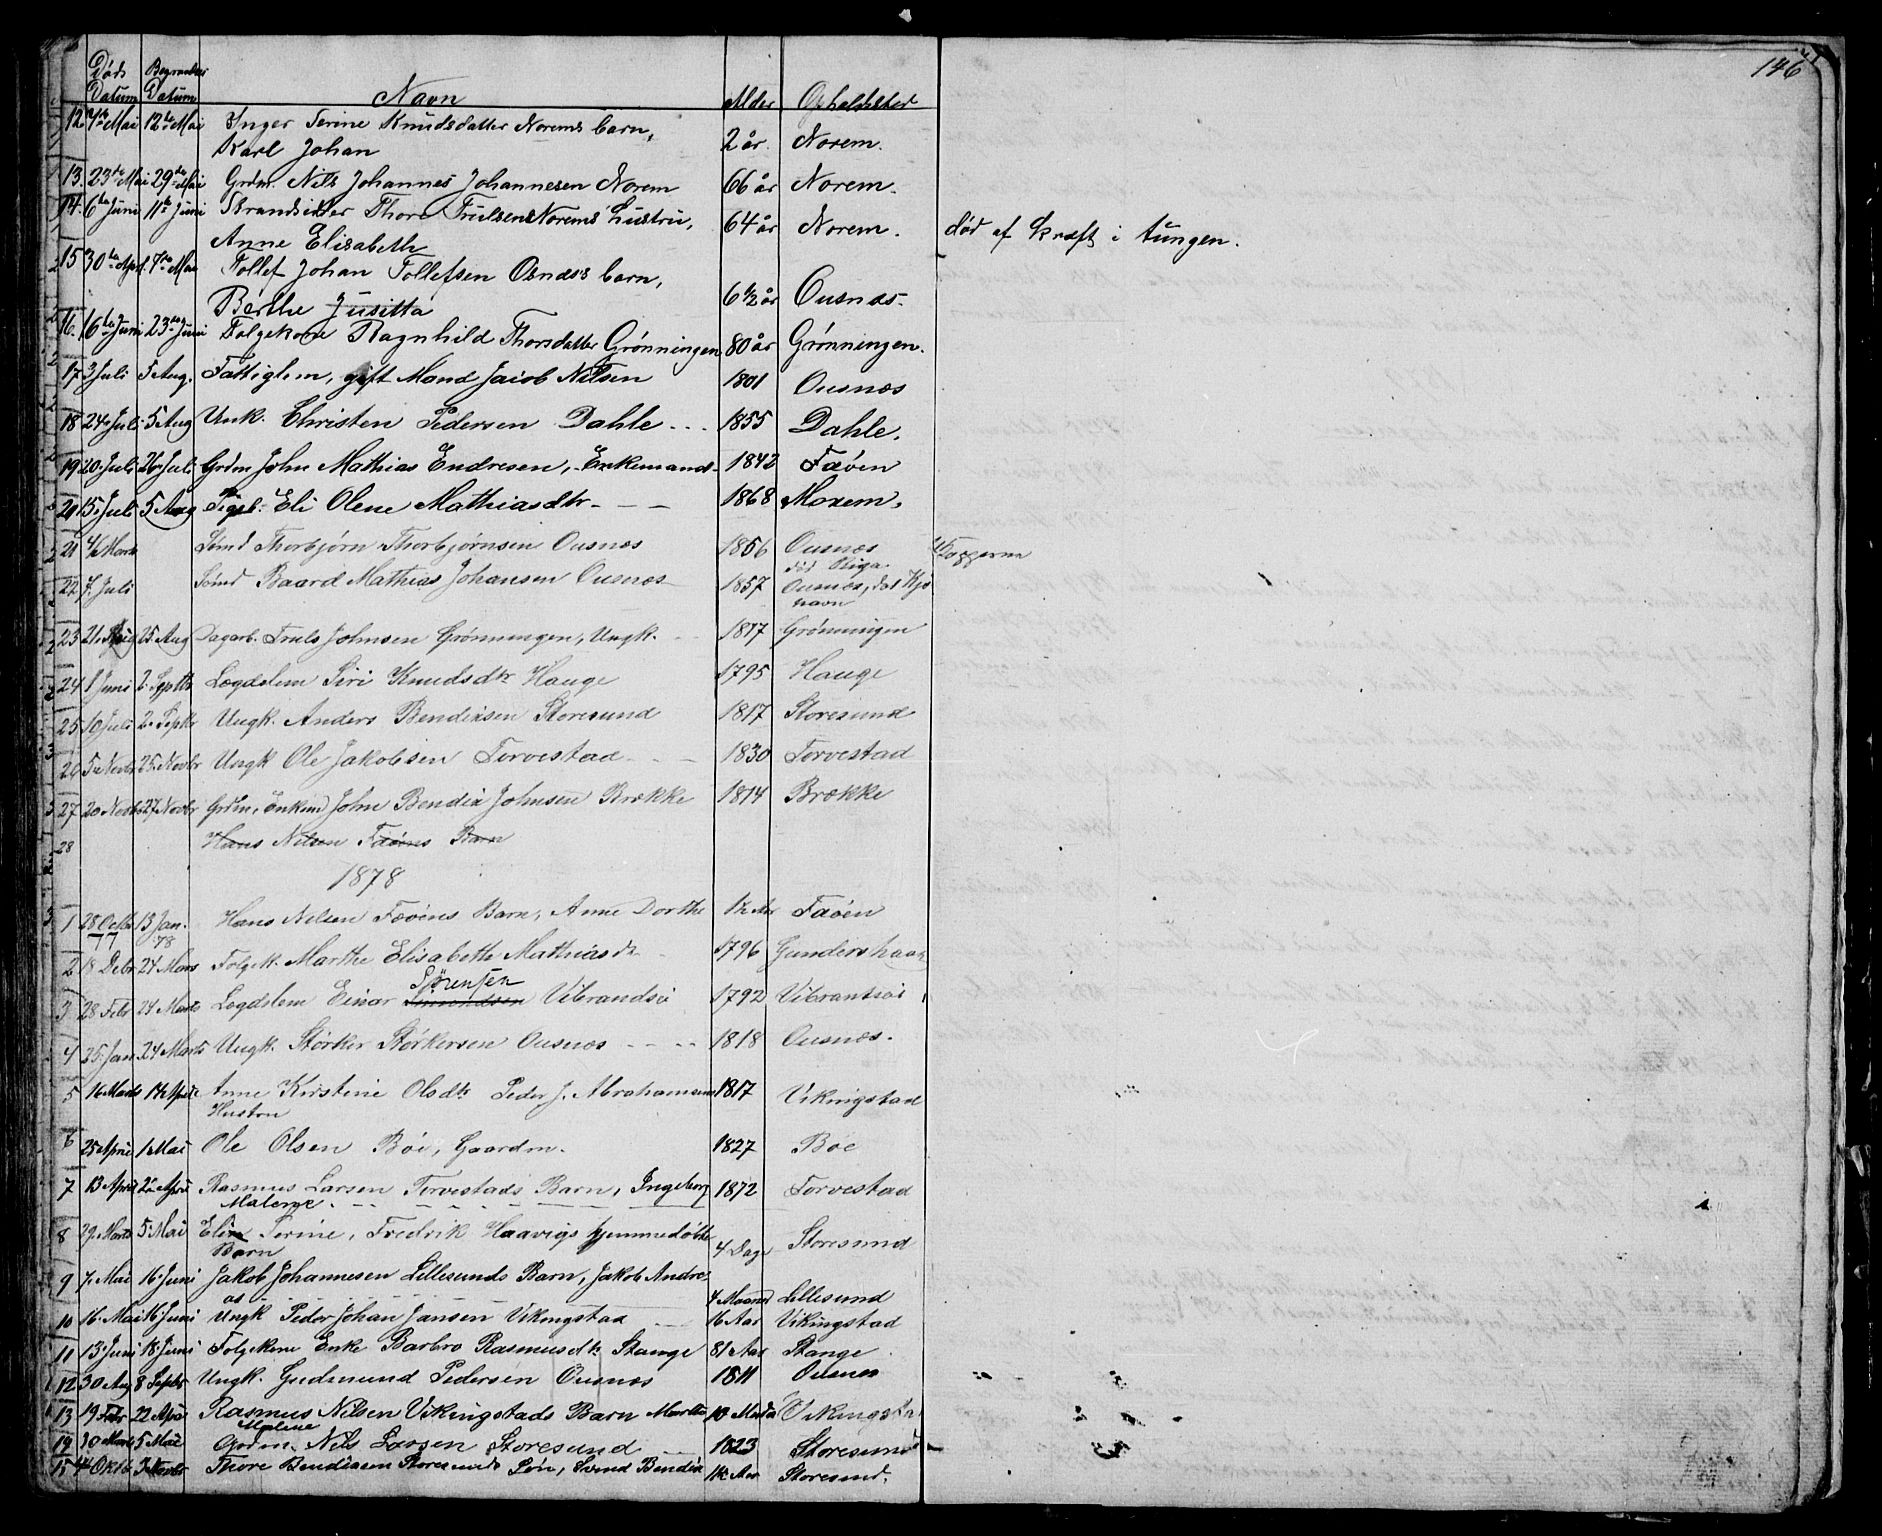 146
Døds Datum Begravelses Datum Navn Alder Opholdsted
12 7de Mai 12te Mai Inger Serine Knudsdatter Norems barn,
Karl Johan 2 år. Norem.
13. 23de Mai 29de Mai Grdm. Nils Johannes Johannesen Norem 66 år Norem.
14. 6te Juni 11te Juni Strandsidder Thore Trulsens Norems hustru,
Anne Elisabeth 64 år Norem. død af kræft i tungen.
15 30te Apr. 7de Mai Tollef Johan Tollefsen Osnæs barn,
Berthe Jusitta 6 1/2 år Ousnæs.
16. 16te Juni 23de Juni Folgekone Ragnhild Thorsdatter Grønningen 80 år Grønningen.
17 3 Juli 5 Aug. Fattiglem, gift Mand Jacob Nilsen 1801 Ousnæs
18 24. Juli 5 Aug Unk. Christen Pedersen Dahle - - . 1855 Dahle.
19 20. Juli 26. Juli Grdm John Mathias Endresen, - Enkemand - 1842 Fæøen
20 15. Juli 5 Aug Pigeb. Eli Olene Mathiasdtr. - - - 1868 Norem.
21 4/ Marts Sømd Thorbjørn Thorbjørnsen Ousnæs 1856 Ousnæs
død Riga.
22 7. Juli Sømd Baard Mathias Johansen Ousnæs 1857 Ousnæs, død Kjø
havn
23 21. Aug 25 Aug Dagarb. Truls Johnsen Grønningen, Ungk. - - 1817 Grønningen
24 1 Juni 2. Septb Lægdslem Siri Knudsdtr Hauge 1795 Hauge
25 10 Juli 2. Septbr Ungk. Anders Bendixsen Storesund 1817 Storesund
26 5. Novbr 25. Novbr Ungk Ole Jakobsen Torvestad - - - 1830 Torvestad
27 20 Novbr 27 Novbr Grdm, Enkem John Bendix Johnsen Brække 1814 Brække
28 Hans Nilsen Fæøens Barn
1878
1 28 Octbr 77 13 Jan. 78 Hans Nilsen Fæøens Barn, Anne Dorthe 1 1/2 Aar Fæøen
2 18 Debr 24 Mars Folgek. Marthe Elisabethe Mathiasdtr. - 1796 Gundershaug
Sørensen
3 28 Febr 24 Marts Lægdslem Einar Simondsen Vibrandsø 1792 Vibrantsøi
4 25. Jan 24 Marts Ungk. Størker Størkersen Ousnæs - - - - 1818 Ousnæs.
5 16 Marts 14 Aprile Anne Kirstine Olsdtr Peder J. Abrahamsens 1817 Vikingstad
Hustru
6 25 April 1 Mai Ole Olsen Bøe, Gaardm. 1827 Bøe
7 13 April 22 April Rasmus Larsen Torvestads Barn, Ingeborg 1872 Torvestad
Malene - - - - - -
8 29. Marts 5. Mai Elin Serine, Fredrik Haavigs hjemmedøbte
Barn 4 Dage Storesund
9 7. Mai 16. Juni Jakob Johannesen Lillesunds Barn, Jakob Andre-
as - - - - 4 Maand Lillesund
10 16. Mai 16 Juni Ungk Peder Johan Jansen Vikingstad - - 16 Aar Vikingstad
11 13. Juni 18. Juni Folgekone Enke Barbro Rasmusdtr Stange 81 Aar Stange
12 30 Aug 8 Septbr Ungk. Gudmund Pedersen Ousnæs 1811 Ousnæs
13 19 Febr 22 April Rasmus Nilsen Vikingstads Barn Marthe 10 Mdr Vikingsta
Malene
14 30 Marts 5 Mai Grdm. Nils Larsen Storesund - - 1823 Storesund
15 4 Oktb 3 Novbr Thore Bendixsen Storesunds Søn, Svend Bendix 1 1/2 Aar Storesund.